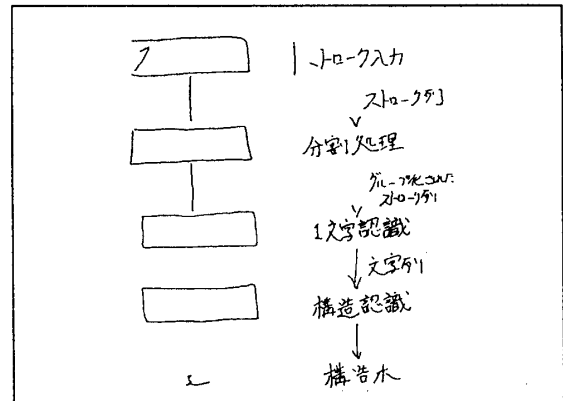 ストローク入力
ストローク列
分割処理
グループ化された
ストローク列
1文字認識
文字列
構造認識
構造木